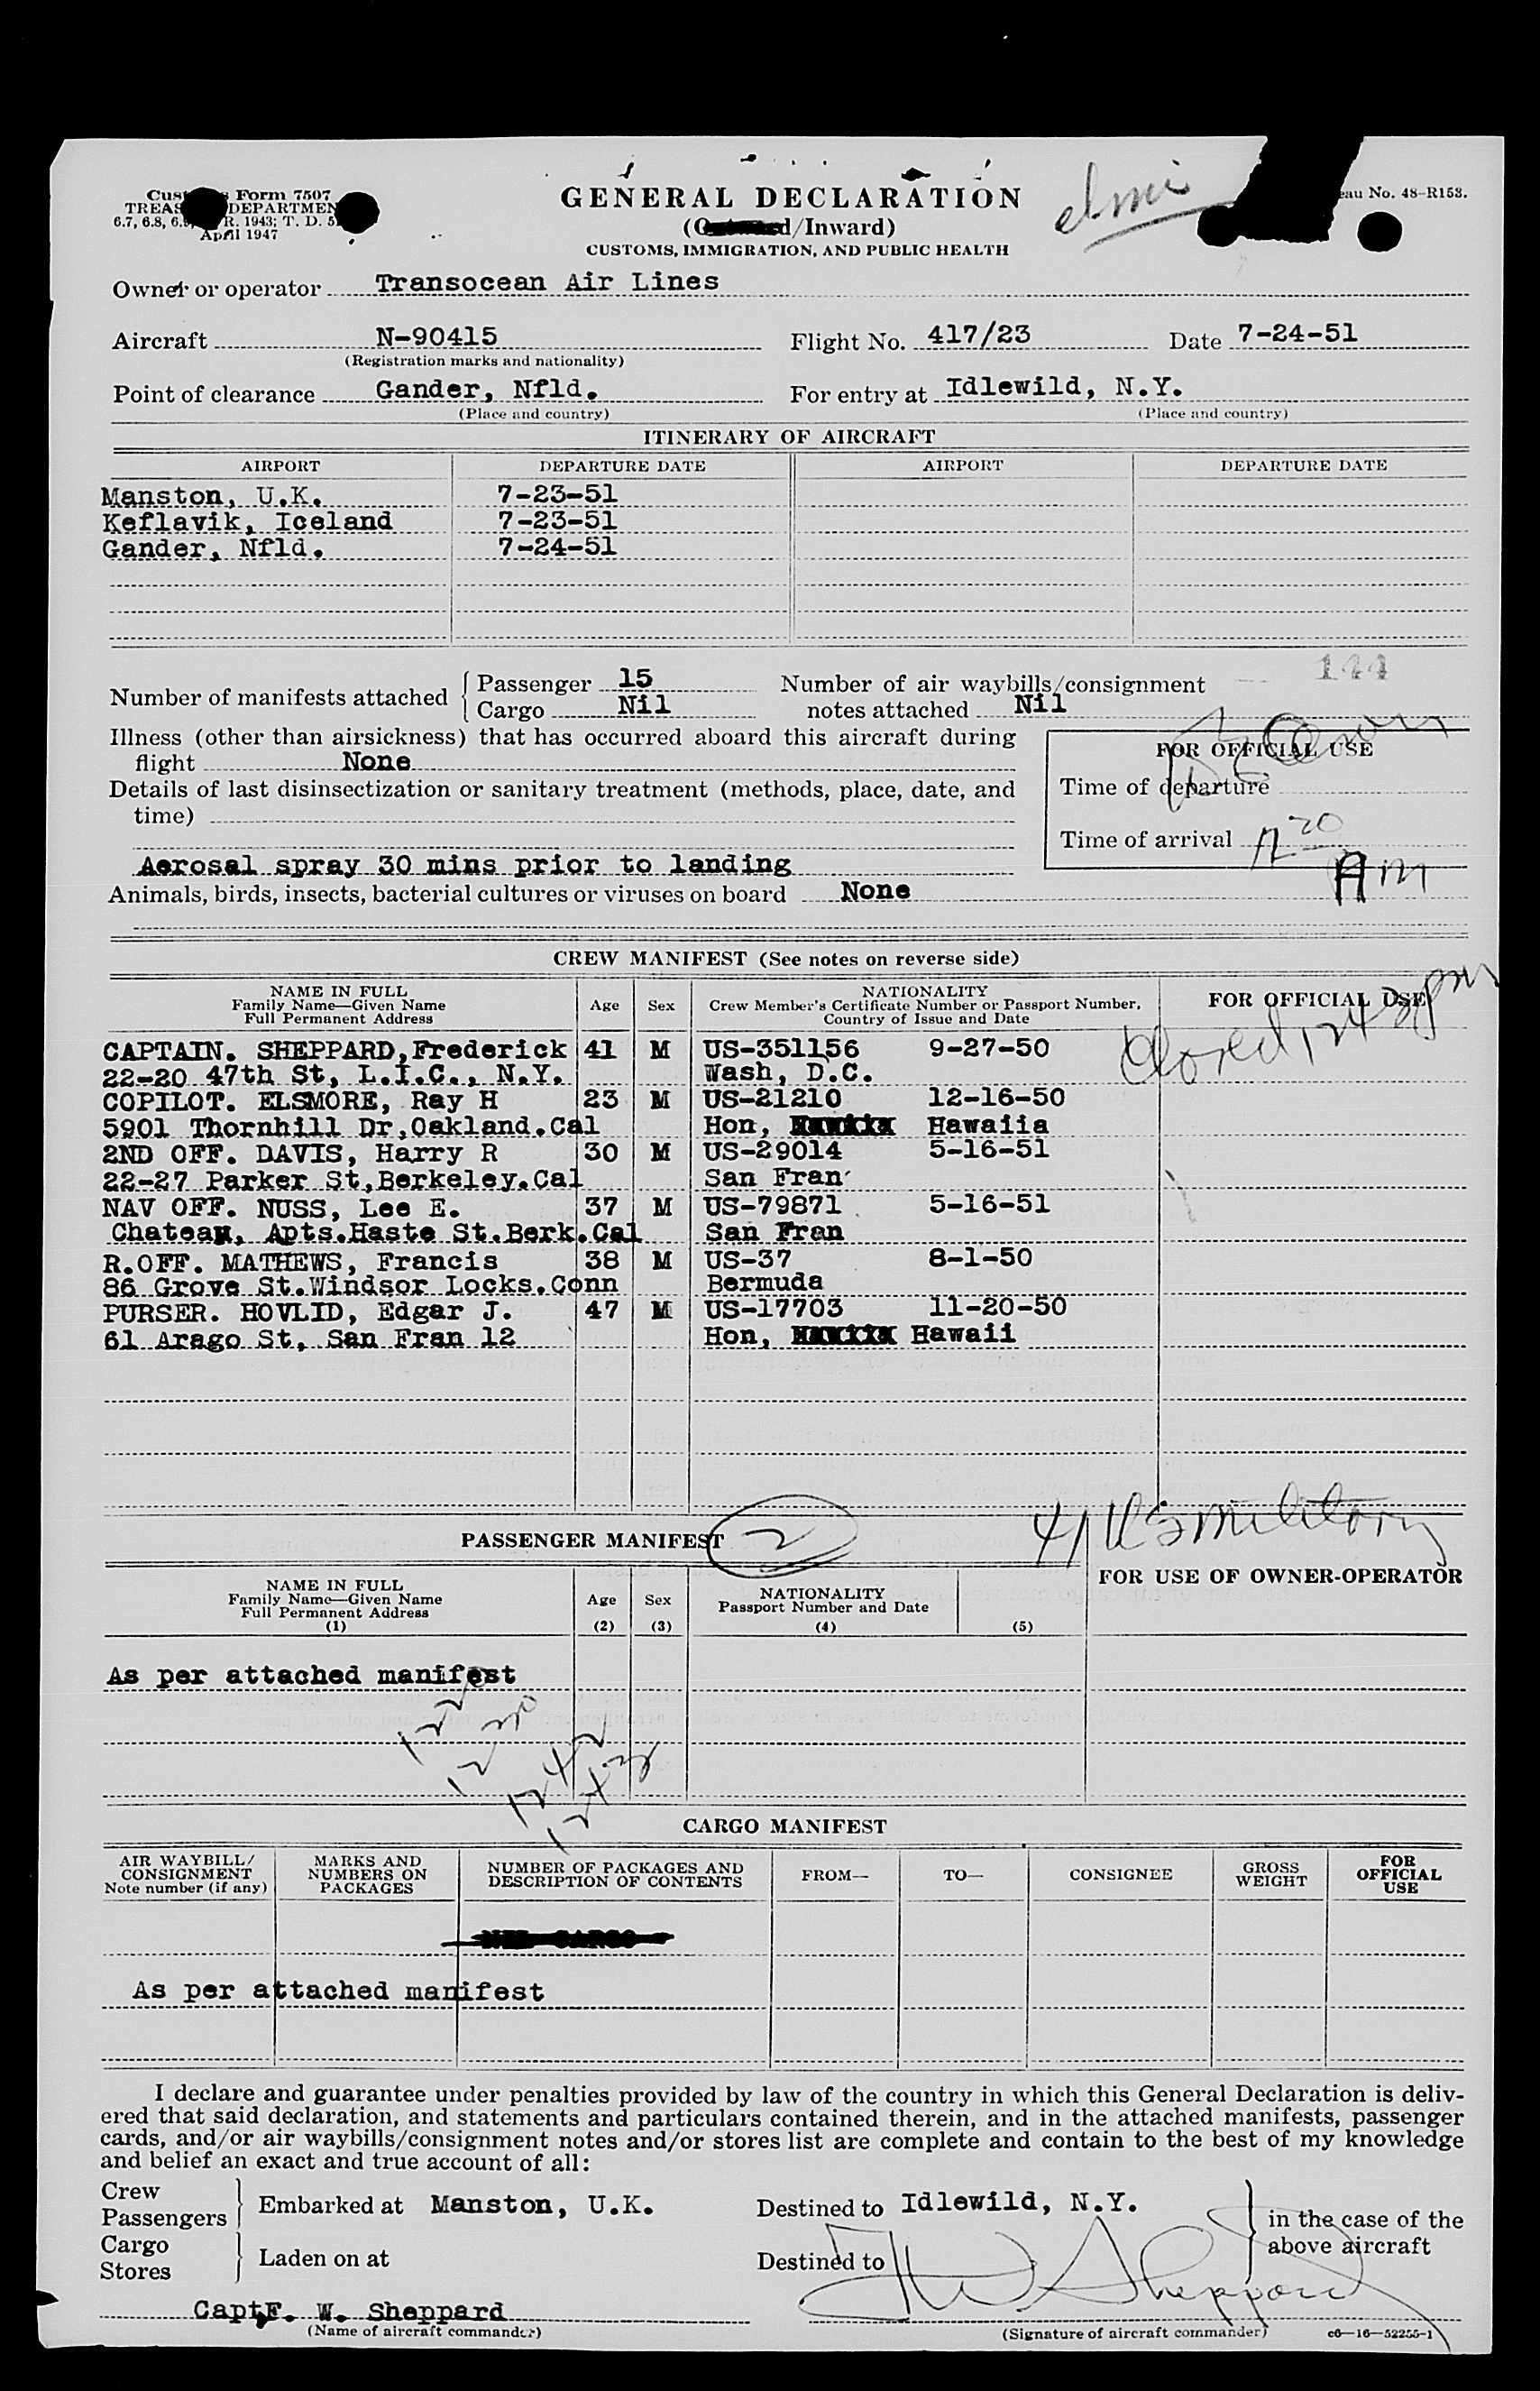 Form 7507
GENERAL DECLARATION
elmi
eau No. 48-R153.
TREAS DEPARTMEN
(O d/Inward)
6.7, 6.8, R. 1943; T. D. 5
April 1947
CUSTOMS, IMMIGRATION, AND PUBLIC HEALTH
Owner or operator Transocean Air Lines
Aircraft N-90415 Flight No. 417/23 Date 7-24-51
(Registration marks and nationality)
Point of clearance Gander, Nfld. For entry at Idlewild, N.Y.
(Place and country) (Place and country)
ITINERARY OF AIRCRAFT
AIRPORT DEPARTURE DATE AIRPORT DEPARTURE DATE
Manston, U.K. 7-23-51
Keflavik, Iceland 7-23-51
Gander, Nfld. 7-24-51
144
Number of manifests attached { Passenger 15 Number of air waybills/consignment
Cargo Nil notes attached Nil
Illness (other than airsickness) that has occurred aboard this aircraft during
flight None
FOR OFFICIAL USE
Details of last disinsectization or sanitary treatment (methods, place, date, and
time)
Time of departure
Time of arrival 12 20
Am
Aerosal spray 30 mins prior to landing
Animals, birds, insects, bacterial cultures or viruses on board None
CREW MANIFEST (See notes on reverse side)
NAME IN FULL
Family Name—Given Name
Full Permanent Address
Age Sex
NATIONALITY
Crew Member's Certificate Number or Passport Number,
Country of Issue and Date
FOR OFFICIAL USE
Closed 1243 pm
CAPTAIN. SHEPPARD,Frederick 41 M US-351156 9-27-50
22-20 47th St, L.I.C., N.Y. Wash, D.C.
COPILOT. ELSMORE, Ray H 23 M US-21210 12-16-50
5901 Thornhill Dr,Oakland.Cal Hon, Hawaiia
2ND OFF. DAVIS, Harry R 30 M US-29014 5-16-51
22-27 Parker St,Berkeley.Cal San Fran
NAV OFF. NUSS, Lee E. 37 M US-79871 5-16-51
Chateau, Apts.Haste St.Berk.Cal San Fran
R.OFF. MATHEWS, Francis 38 M US-37 8-1-50
86 Grove St.Windsor Locks.Conn Bermuda
PURSER. HOVLID, Edgar J. 47 M US-17703 11-20-50
61 Arago St, San Fran 12 Hon, Hawaii
PASSENGER MANIFEST 2 41 US military
NAME IN FULL
Family Name—Given Name
Full Permanent Address
(1)
Age
(2)
Sex
(3)
NATIONALITY
Passport Number and Date
(4)
(5)
FOR USE OF OWNER-OPERATOR
As per attached manifest
122
12 30
1242
1243
CARGO MANIFEST
AIR WAYBILL/
CONSIGNMENT
Note number (if any)
MARKS AND
NUMBERS ON
PACKAGES
NUMBER OF PACKAGES AND
DESCRIPTION OF CONTENTS
FROM—
TO—
CONSIGNEE
GROSS
WEIGHT
FOR
OFFICIAL
USE
As per attached manifest
I declare and guarantee under penalties provided by law of the country in which this General Declaration is deliv-
ered that said declaration, and statements and particulars contained therein, and in the attached manifests, passenger
cards, and/or air waybills/consignment notes and/or stores list are complete and contain to the best of my knowledge
and belief an exact and true account of all:
Crew
Passengers } Embarked at Manston, U.K. Destined to Idlewild, N.Y. } in the case of the
above aircraft
Cargo
Stores } Laden on at Destined to
FW Sheppard
Capt,F. W. Sheppard
(Name of aircraft commander) (Signature of aircraft commander) c6—16—52255-1